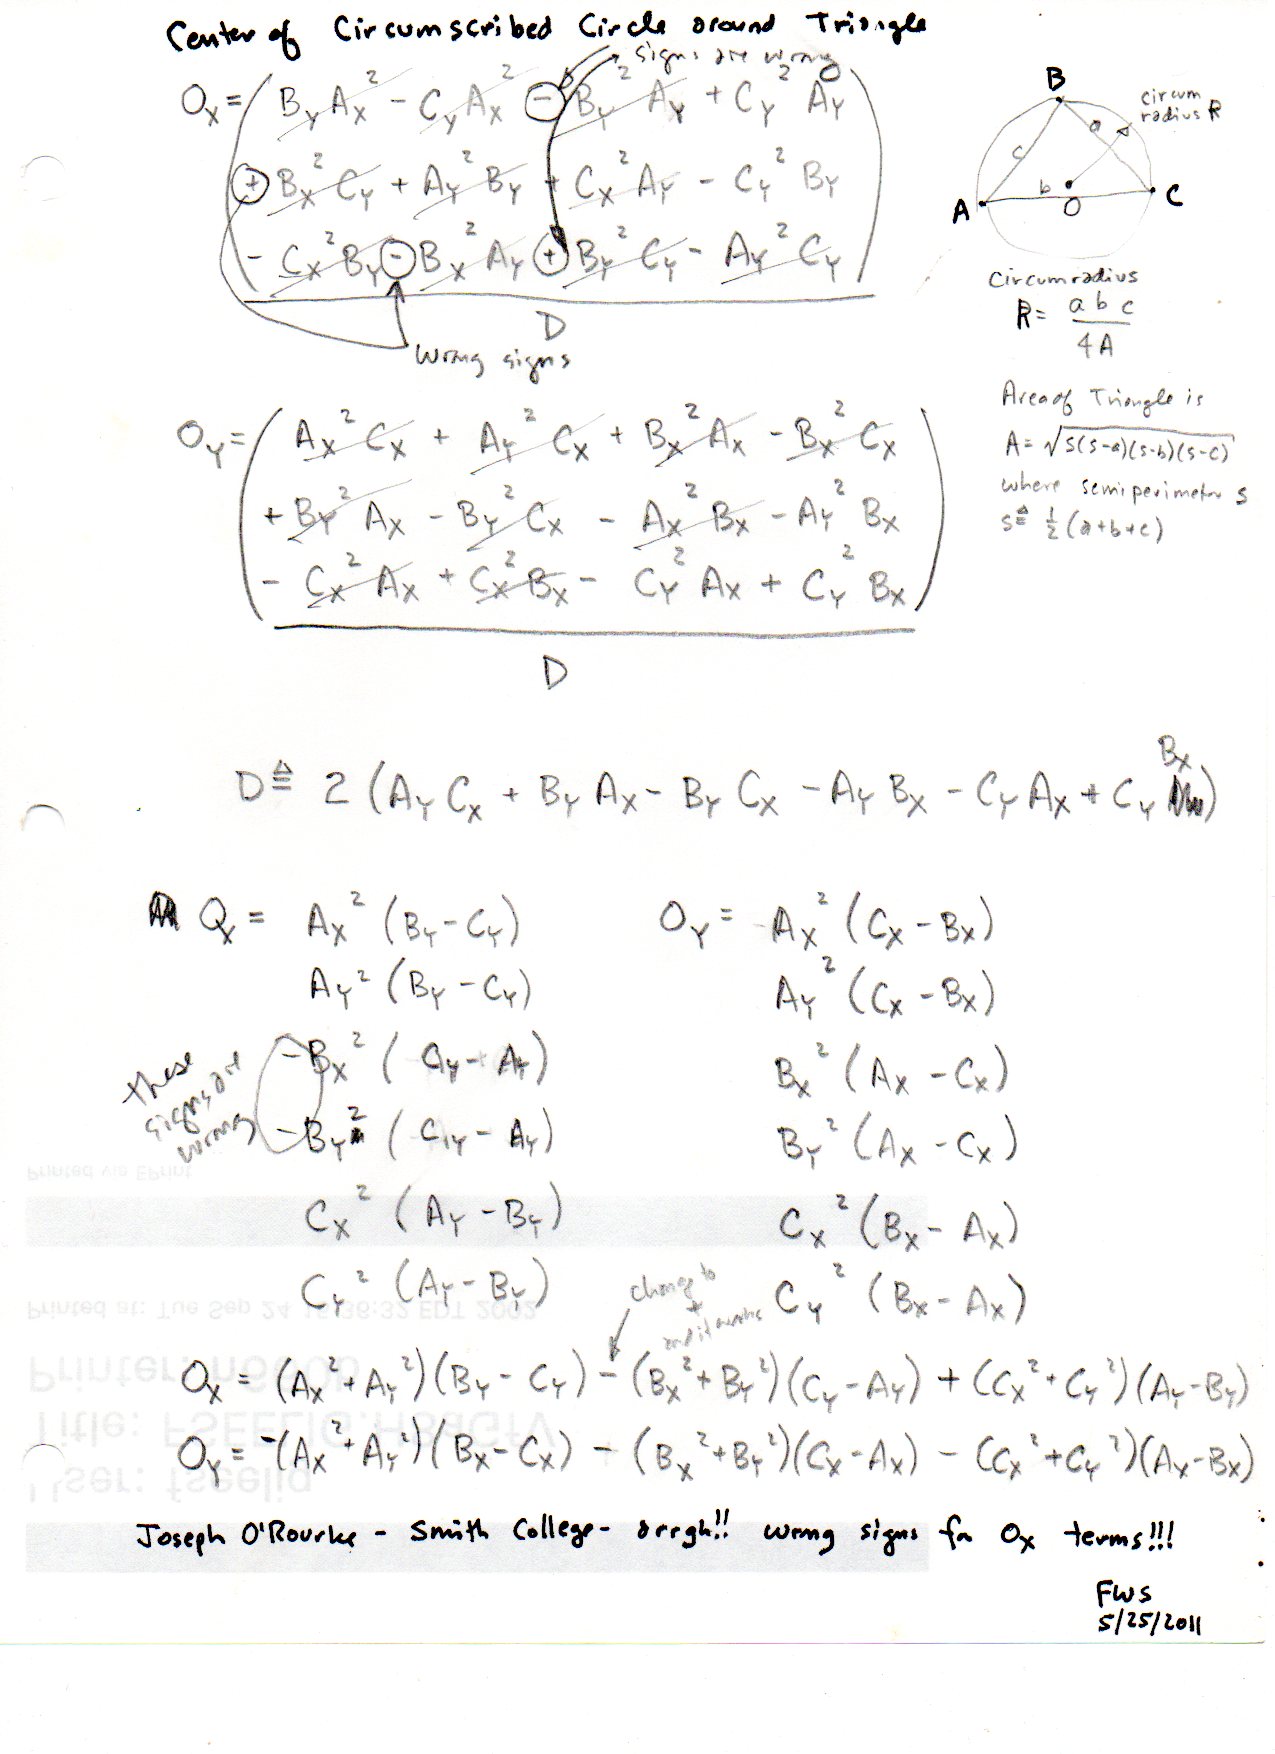 Center of Circumscribed Circle around Triangle
signs are wrong
O_X = ( B_Y A_X² - C_Y A_X² ⊖ B_Y² A_Y + C_Y² A_Y
⊕ B_X² C_Y + A_Y² B_Y + C_X² A_Y - C_Y² B_Y
- C_X² B_Y ⊖ B_X² A_Y ⊕ B_Y² C_Y - A_Y² C_Y )
D
wrong signs
B
circum
radius R
a
c
b
A
O
C
Circumradius
R = a b c / 4A
Area of Triangle is
A = √S(S-a)(S-b)(S-c)
where semiperimeter S
S ≜ ½ (a+b+c)
O_Y = ( A_X² C_X + A_Y² C_X + B_X² A_X - B_X² C_X
+ B_Y² A_X - B_Y² C_X - A_X² B_X - A_Y² B_X
- C_X² A_X + C_X² B_X - C_Y² A_X + C_Y² B_X )
D
D ≜ 2 (A_Y C_X + B_Y A_X - B_Y C_X - A_Y B_X - C_Y A_X + C_Y B_X)
O_X = A_X² (B_Y - C_Y)
A_Y² (B_Y - C_Y)
- B_X² (C_Y - A_Y)
- B_Y² (C_Y - A_Y)
C_X² (A_Y - B_Y)
C_Y² (A_Y - B_Y)
these
signs are
wrong
O_Y = A_X² (C_X - B_X)
A_Y² (C_X - B_X)
B_X² (A_X - C_X)
B_Y² (A_X - C_X)
C_X² (B_X - A_X)
C_Y² (B_X - A_X)
change to
+
and it works
O_X = (A_X² + A_Y²)(B_Y - C_Y) - (B_X² + B_Y²)(C_Y - A_Y) + (C_X² + C_Y²)(A_Y - B_Y)
O_Y = -(A_X² + A_Y²)(B_X - C_X) - (B_X² + B_Y²)(C_X - A_X) - (C_X² + C_Y²)(A_X - B_X)
Joseph O'Rourke - Smith College - arrgh!! wrong signs for O_X terms!!!
FWS
5/25/2011
Printed via EPrint